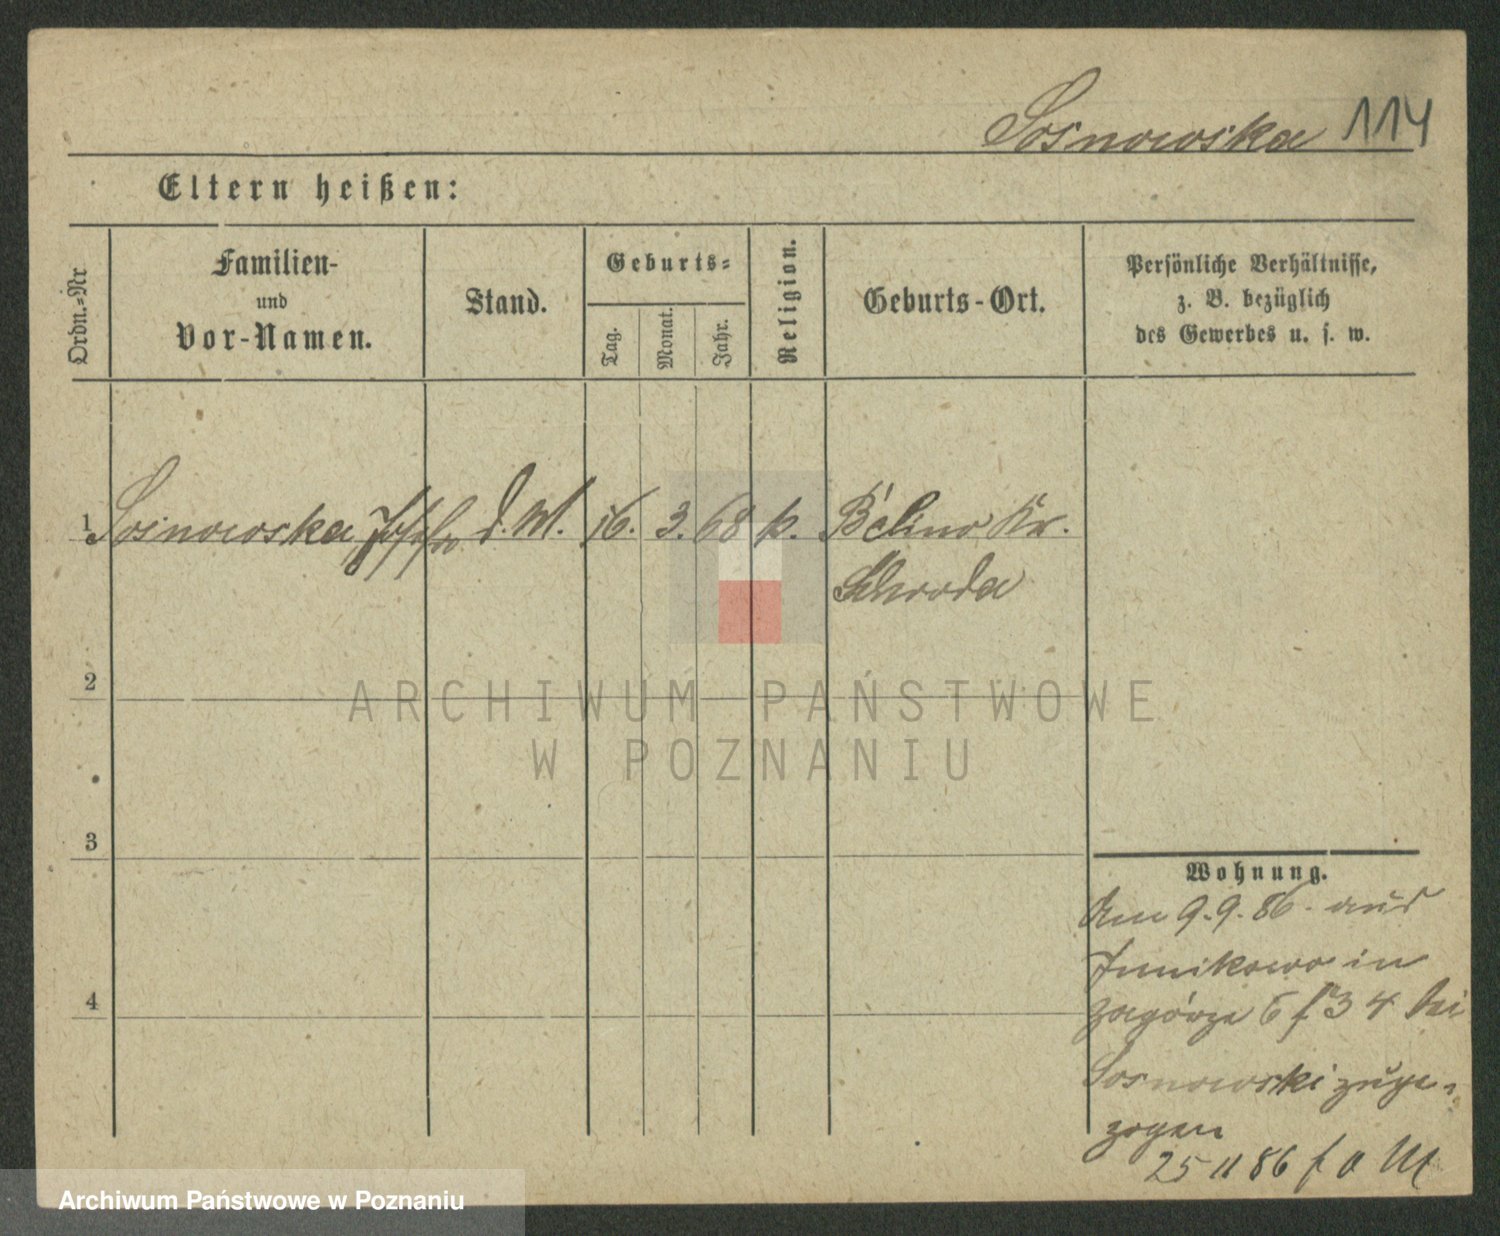 Sosnowska 114
Eltern heißen:
Ordn.=Nr
Familien-
und
Vor-Namen.
Stand.
Geburts=
Tag.
Monat.
Jahr.
Religion.
Geburts-Ort.
Persönliche Verhältnisse,
z. B. bezüglich
des Gewerbes u. s. w.
1 Sosnowska, Josefa d. M. 16. 3. 68 k. Bélino Kr.
Schroda
2
ARCHIWUM PAŃSTWOWE
W POZNANIU
3
Wohnung.
Am 9.9.86. aus
Junikowo in
4
Zagórze 6 34 bei
Sosnowski zuge-
zogen
25 11 86
Archiwum Państwowe w Poznaniu